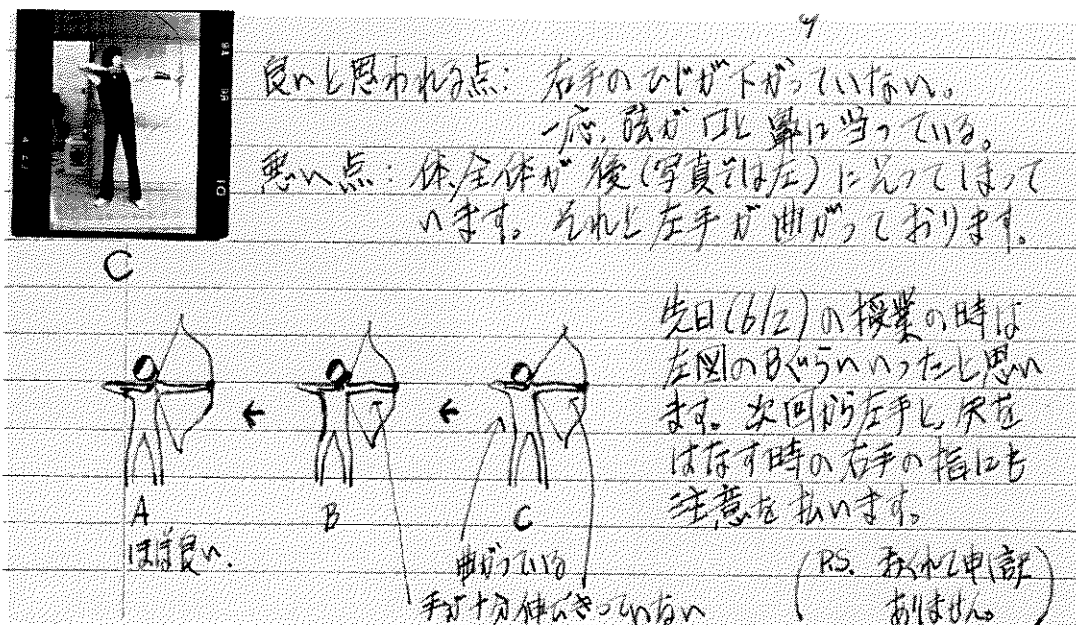 良いと思われる点: 右手のひじが下がっていない。
一応、弦が口と鼻に当っている。
悪い点: 体全体が後(写真では左)に反ってしまって
います。それと左手が曲がっております。
C
先日(6/2)の授業の時は
左図のBぐらいいったと思い
ます。次回から左手と矢を
はなす時の右手の指にも
注意を払います。
A
B
C
ほぼ良い.
曲がっている
手が十分伸びきっていない
(P.S. おくれて申し訳
ありません。)